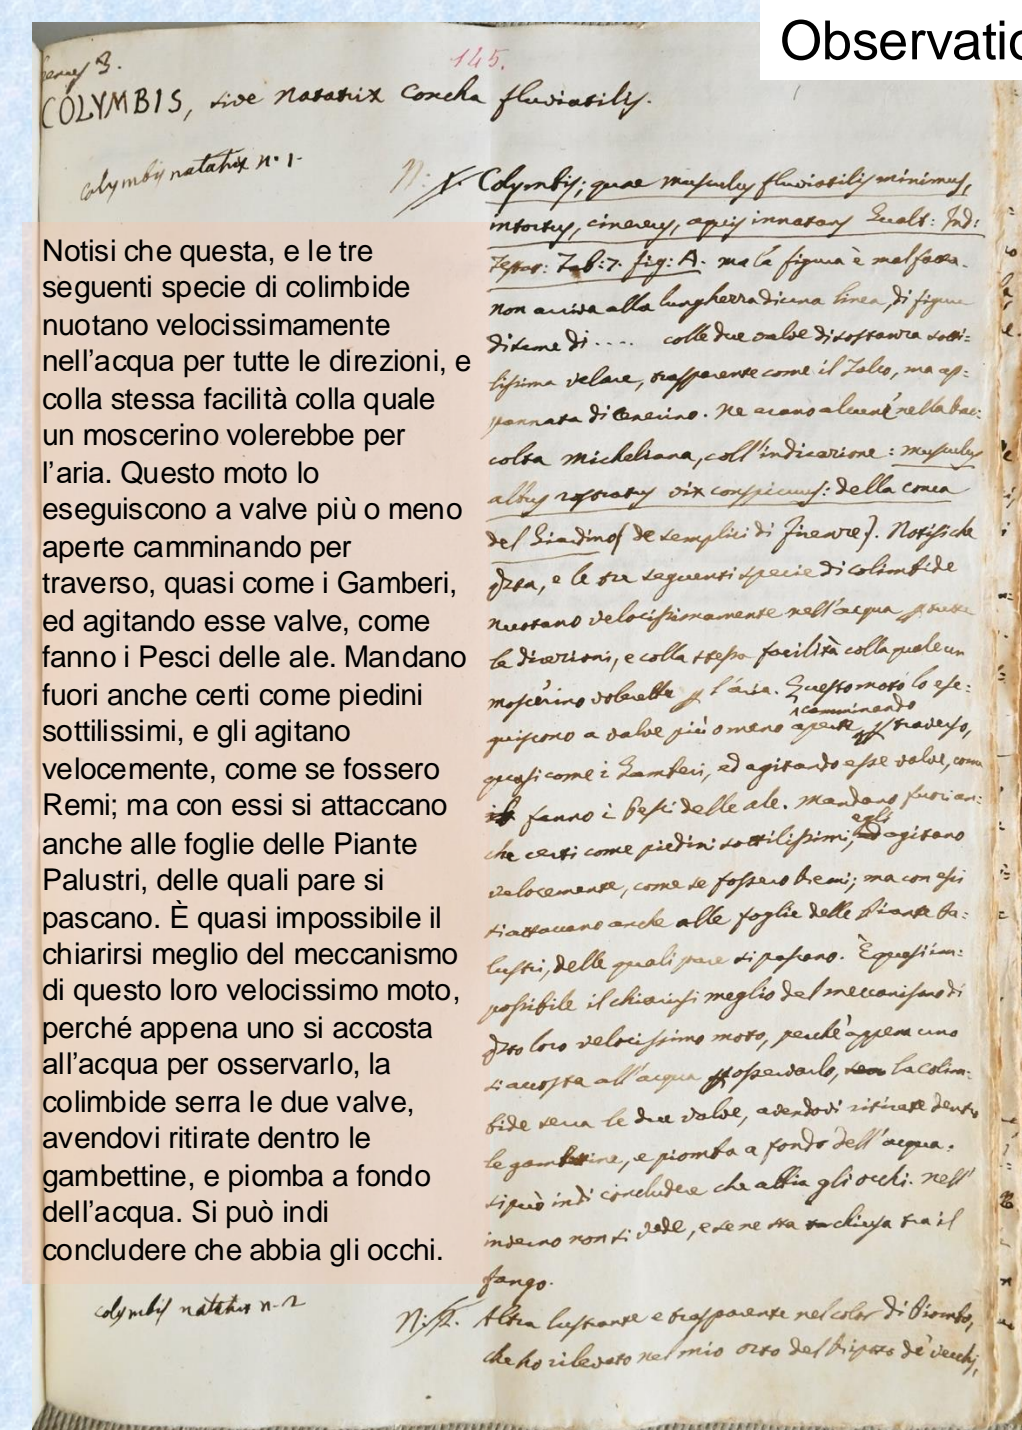 Observatio
145.
COLYMBIS, sive Natatrix Concha fluviatilis.
Colymbis natatrix n. 1.
Notisi che questa, e le tre
seguenti specie di colimbide
nuotano velocissimamente
nell’acqua per tutte le direzioni, e
colla stessa facilità colla quale
un moscerino volerebbe per
l’aria. Questo moto lo
eseguiscono a valve più o meno
aperte camminando per
traverso, quasi come i Gamberi,
ed agitando esse valve, come
fanno i Pesci delle ale. Mandano
fuori anche certi come piedini
sottilissimi, e gli agitano
velocemente, come se fossero
Remi; ma con essi si attaccano
anche alle foglie delle Piante
Palustri, delle quali pare si
pascano. È quasi impossibile il
chiarirsi meglio del meccanismo
di questo loro velocissimo moto,
perché appena uno si accosta
all’acqua per osservarlo, la
colimbide serra le due valve,
avendovi ritirate dentro le
gambettine, e piomba a fondo
dell’acqua. Si può indi
concludere che abbia gli occhi.
Colymbis natatrix n. 2
N: 1. Colymbis; quae musculus fluviatilis minimus,
intortus, cinereus, aquis innatans Gualt: Ind:
Testar: Tab: 7. fig: A. ma la figura è malfatta.
non arriva alla lunghezza di una linea, di figura
di seme di .... colle due valve di sostanza sotti=
lissima velare, trasparente come il Talco, ma ap=
pannata di Cenerino. Ne aveano alcune nella Rac=
colta Micheliana, coll'indicazione: musculus
albus rostratus vix conspicuus: della conca
del Giardino de semplici di Firenze]. Notisi che
qsta, e le tre seguenti specie di colimbide
nuotano velocissimamente nell'acqua p tutte
le direzioni, e colla stessa facilità colla quale un
moscerino volerebbe p l'aria. Questo moto lo ese=
camminando
guiscono a valve più o meno aperte p traverso,
quasi come i Gamberi, ed agitando esse valve, come
fanno i Pesci delle ale. Mandano fuori an=
che certi come piedini sottilissimi, e gli agitano
velocemente, come se fossero Remi; ma con essi
si attaccano anche alle foglie delle Piante Pa=
lustri, delle quali pare si pascano. È quasi im=
possibile il chiarirsi meglio del meccanismo di
qsto loro velocissimo moto, perchè appena uno
si accosta all'acqua p osservarlo, la colim=
bide serra le due valve, avendovi ritirate dentro
le gambettine, e piomba a fondo dell'acqua.
si può indi concludere che abbia gli occhi. nell'
inverno non si vede, e se ne sta chiusa tra il
fango.
N: 2. Altra lustrante e trasparente nel color di Piombo,
che ho rilevato nel mio orto del de' vecchj,